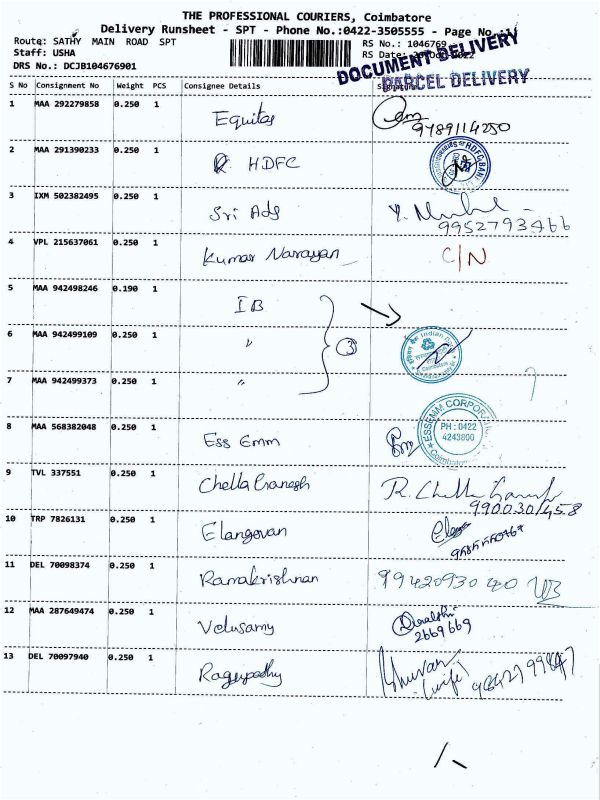 THE PROFESSIONAL COURIERS, Coimbatore
Delivery Runsheet - SPT - Phone No.:0422-3505555 - Page No.:
Route: SATHY MAIN ROAD SPT
RS No.: 1046769
Staff: USHA
RS Date:
DRS No.: DCJB104676901
DOCUMENT DELIVERY
PARCEL DELIVERY
S No Consignment No Weight PCS Consignee Details Signature
1 MAA 292279858 0.250 1 Equitas 9789114250
2 MAA 291390233 0.250 1 HDFC
HDFC BANK
3 IXM 502382495 0.250 1 Sri Ads 9952793466
4 VPL 215637061 0.250 1 Kumar Narayan C/N
5 MAA 942498246 0.190 1 IB
6 MAA 942499109 0.250 1 " 3
Indian Coimbatore
7 MAA 942499373 0.250 1 "
8 MAA 568382048 0.250 1 Ess Emm
ESSEMM CORPORATION
PH : 0422
4243800
Coimbatore
9 TVL 337551 0.250 1 Chella Ganesh R. Chella Ganesh
10 TRP 7826131 0.250 1 Elangovan
11 DEL 70098374 0.250 1 Ramakrishnan 9942093040
12 MAA 287649474 0.250 1 Velusamy
2669669
13 DEL 70097940 0.250 1 Ragupathy Bhuvan
(wife)